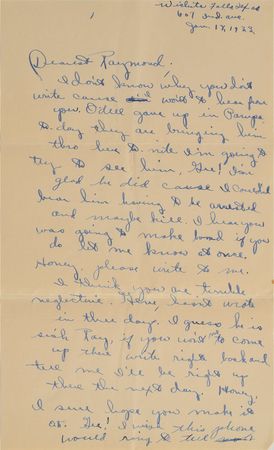 Wichita Falls Texas
607 Ind. ave.
Jan. 18, 1933.
1
Dearest Raymond,
I don't know why you don't
write cause I want to hear from
you. O'Dell gave up in Pampa
to-day they are bringing him
thro here to-nite I'm going to
try to see him, Gee! I'm
glad he did cause I couldn't
bear him having to be arrested
and maybe kill. I hear you
was going to make bond if you
do let me know at once.
Honey, please write to me.
I think you are terrible
neglective. Gene, hasn't wrote
in three days. I guess he is
sick Ray, if you want me to come
up there write right back and
tell me I'll be right up
there the next day. Honey,
I sure hope you make it
o.k. Gee! I wish this phone
would ring to tell